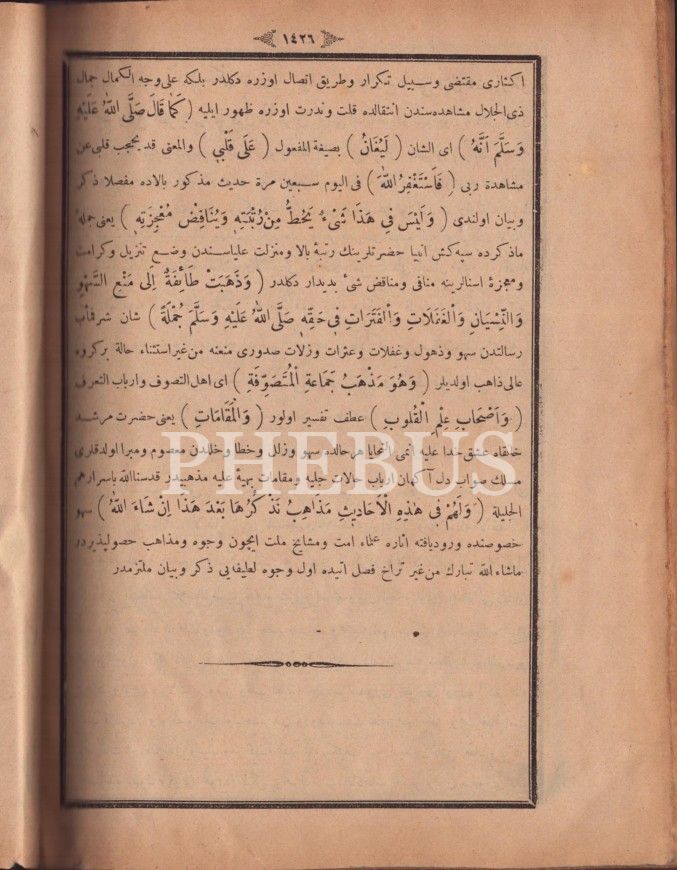 ١٤٢٦
اكثارى مقتضى وسبيل تكرار وطريق اتصال اوزره دكلدر بلكه على وجه الكمال جمال
ذى الجلال مشاهده سندن انتقالده قلت وندرت اوزره ظهور ايليه ( كَمَا قَالَ صَلَّى اللهُ عَلَيْهِ
وَسَلَّمَ اَنَّهُ ) اى الشان ( لَيُغَانُ ) بصيغة المفعول ( عَلَى قَلْبِي ) والمعنى قد يحجب قلبى عن
مشاهدة ربى ( فَاَسْتَغْفِرُ اللهَ ) فى اليوم سبعين مرة حديث مذكور بالاده مفصلا ذكر
وبيان اولندى ( وَلَيْسَ فِي هَذَا شَىْءٌ يَحُطُّ مِنْ رُتْبَتِهِ وَيُنَاقِضُ مُعْجِزَتِهِ ) يعنى جمله
ماذكرده سبه كش انبيا حضرتلرينك رتبۀ بالا ومنزلت علياسندن وضع تنزيل وكرامت
ومعجزۀ اسنالرينه منافى ومناقض شئ بديدار دكلدر ( وَذَهَبَتْ طَائِفَةٌ اِلَى مَنْعِ السَّهْوِ
وَالنِّسْيَانِ وَالْغَفَلَاتِ وَالْفَتَرَاتِ فِي حَقِّهِ صَلَّى اللهُ عَلَيْهِ وَسَلَّمَ جُمْلَةً ) شان شرفمأب
رسالتدن سهو وذهول وغفلات وعثرات وزلات صدورى منعنه من غير استثناء حالة بركروه
عالى ذاهب اولديلر ( وَهُوَ مَذْهَبُ جَمَاعَةِ الْمُتَصَوِّفَةِ ) اى اهل التصوف وارباب التعرف
( وَاَصْحَابِ عِلْمِ الْقُلُوبِ ) عطف تفسير اولور ( وَالْمَقَامَاتِ ) يعنى حضرت مرشد
خانقاه عشق خدا عليه اتمى التحايا هر حالده سهو وزلل وخطا وخللدن معصوم ومبرا اولدقلرى
مسلك صواب دل آكهان ارباب حالات جليه ومقامات بهيۀ عليه مذهبيدر قدسنا الله باسرارهم
الجليلة ( وَلَهُمْ فِي هٰذِهِ الْاَحَادِيثِ مَذَاهِبُ نَذْكُرُهَا بَعْدَ هَذَا اِنْ شَاءَ اللهُ ) سهو
خصوصنده ورود يافته آثاره علماء امت ومشايخ ملت ايچون وجوه ومذاهب حصولپذيردر
ماشاء الله تبارك من غير تراخ فصل آتيده اول وجوه لطيفه‌يى ذكر وبيان ملتزمدر
PHEBUS